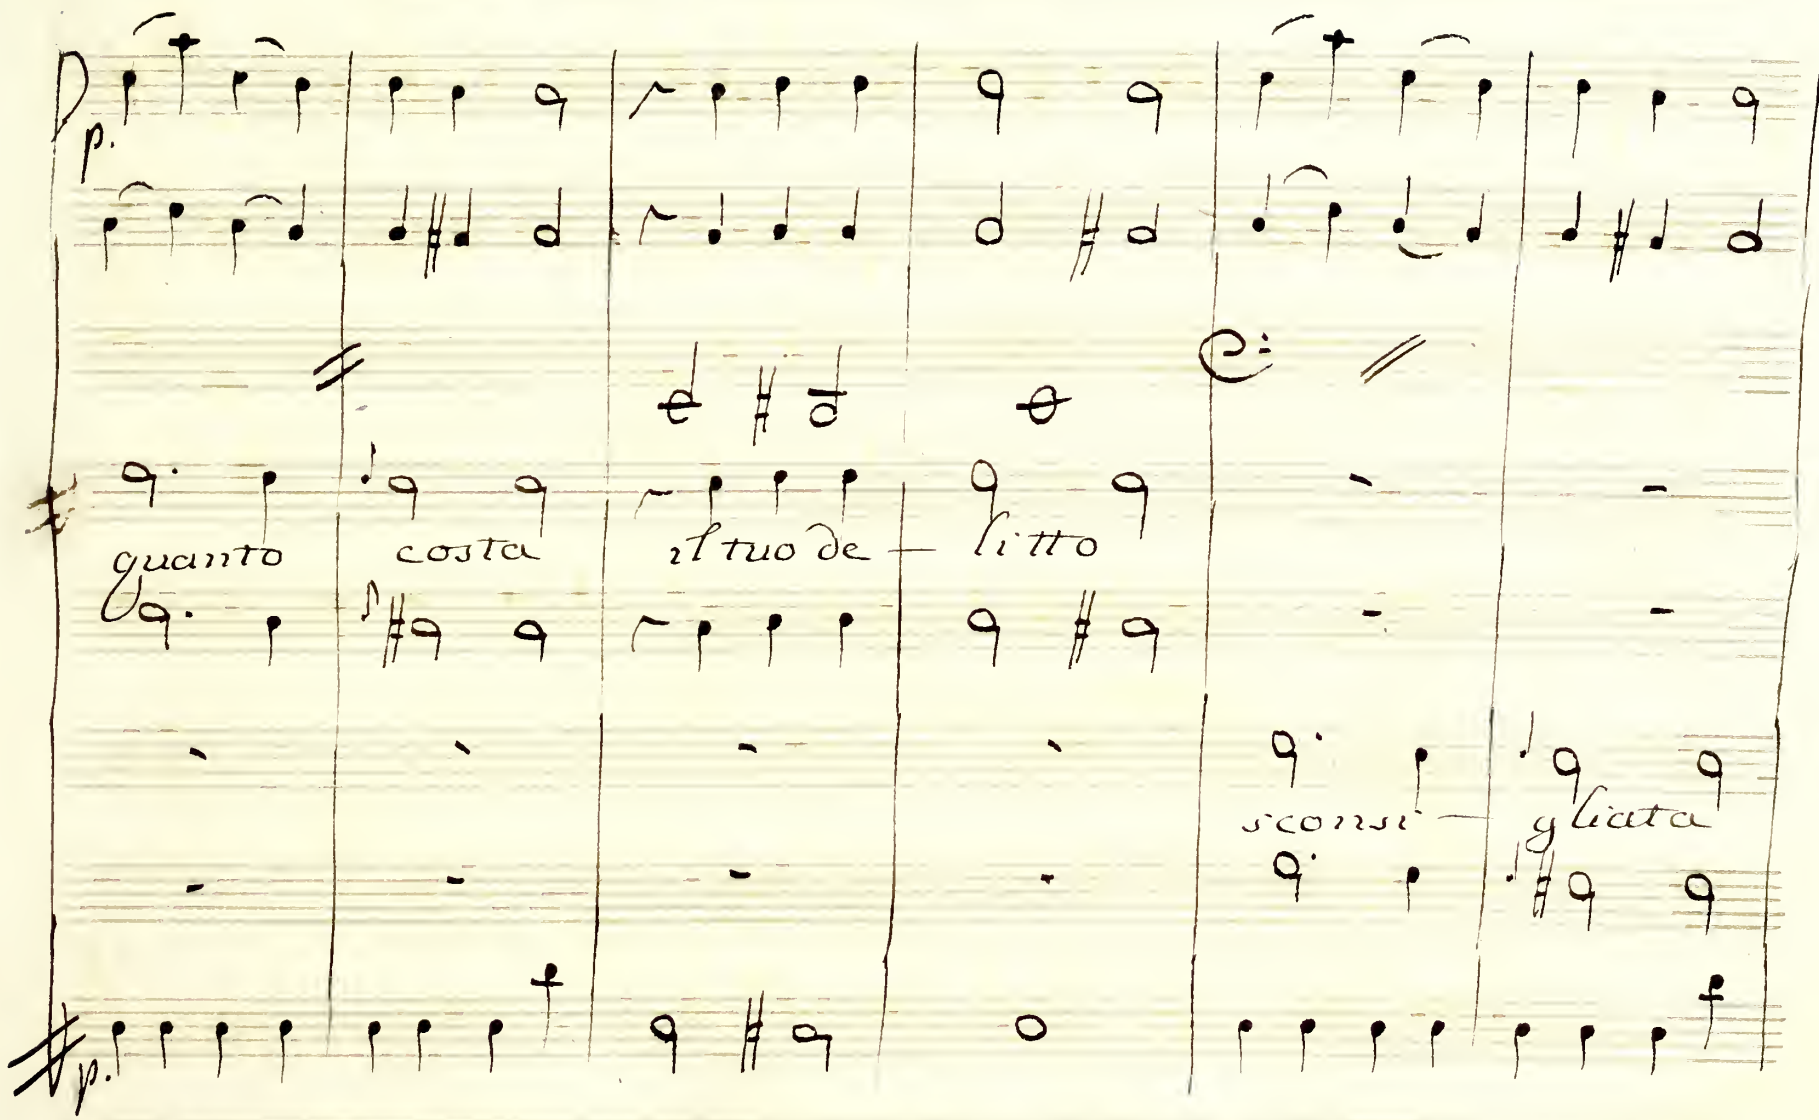 p.
quanto costa il tuo de - litto
sconsi - gliata
p.